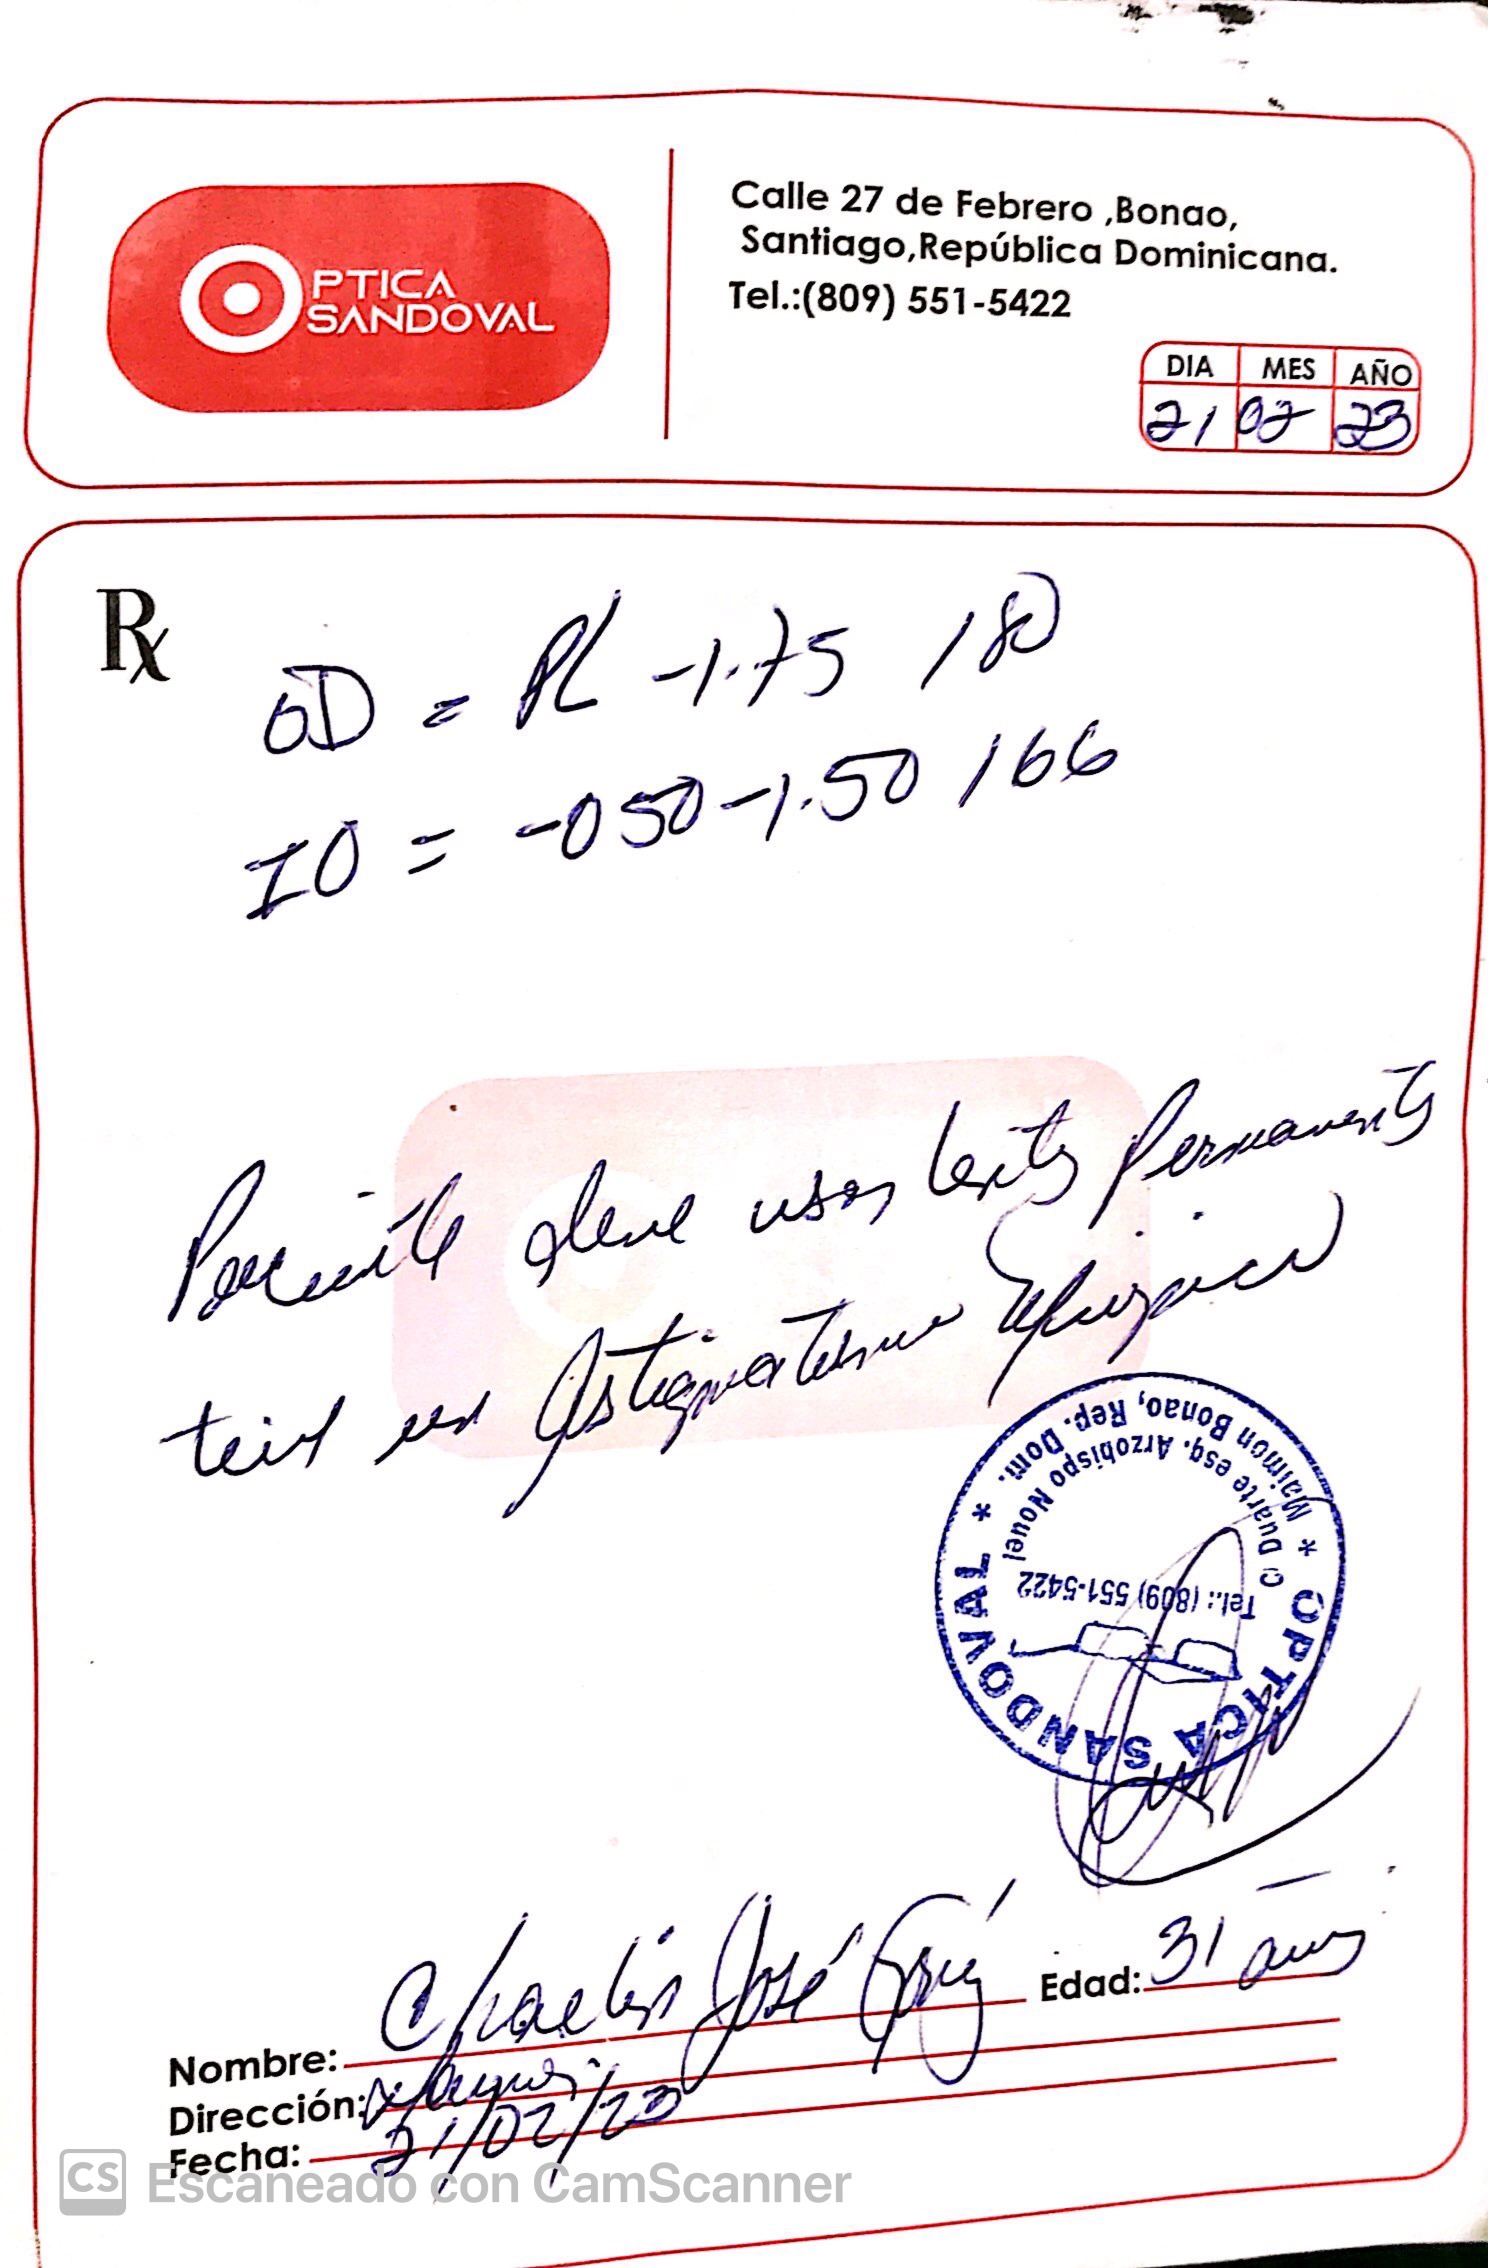 OPTICA
SANDOVAL
Calle 27 de Febrero ,Bonao,
Santiago,República Dominicana.
Tel.:(809) 551-5422
DIA MES AÑO
21 02 23
Rx
OD = PL -1.75 180
IO = -050 -1.50 166
Paciente debe usar lentes permanentes
tiene un Astigmatismo
* OPTICA SANDOVAL *
Maimon Bonao, Rep. Dom.
C/ Duarte esq. Arzobispo Nouel
Tel.: (809) 551-5422
Nombre: José Edad: 31 años
Dirección:
Fecha: 21/02/23
CS Escaneado con CamScanner